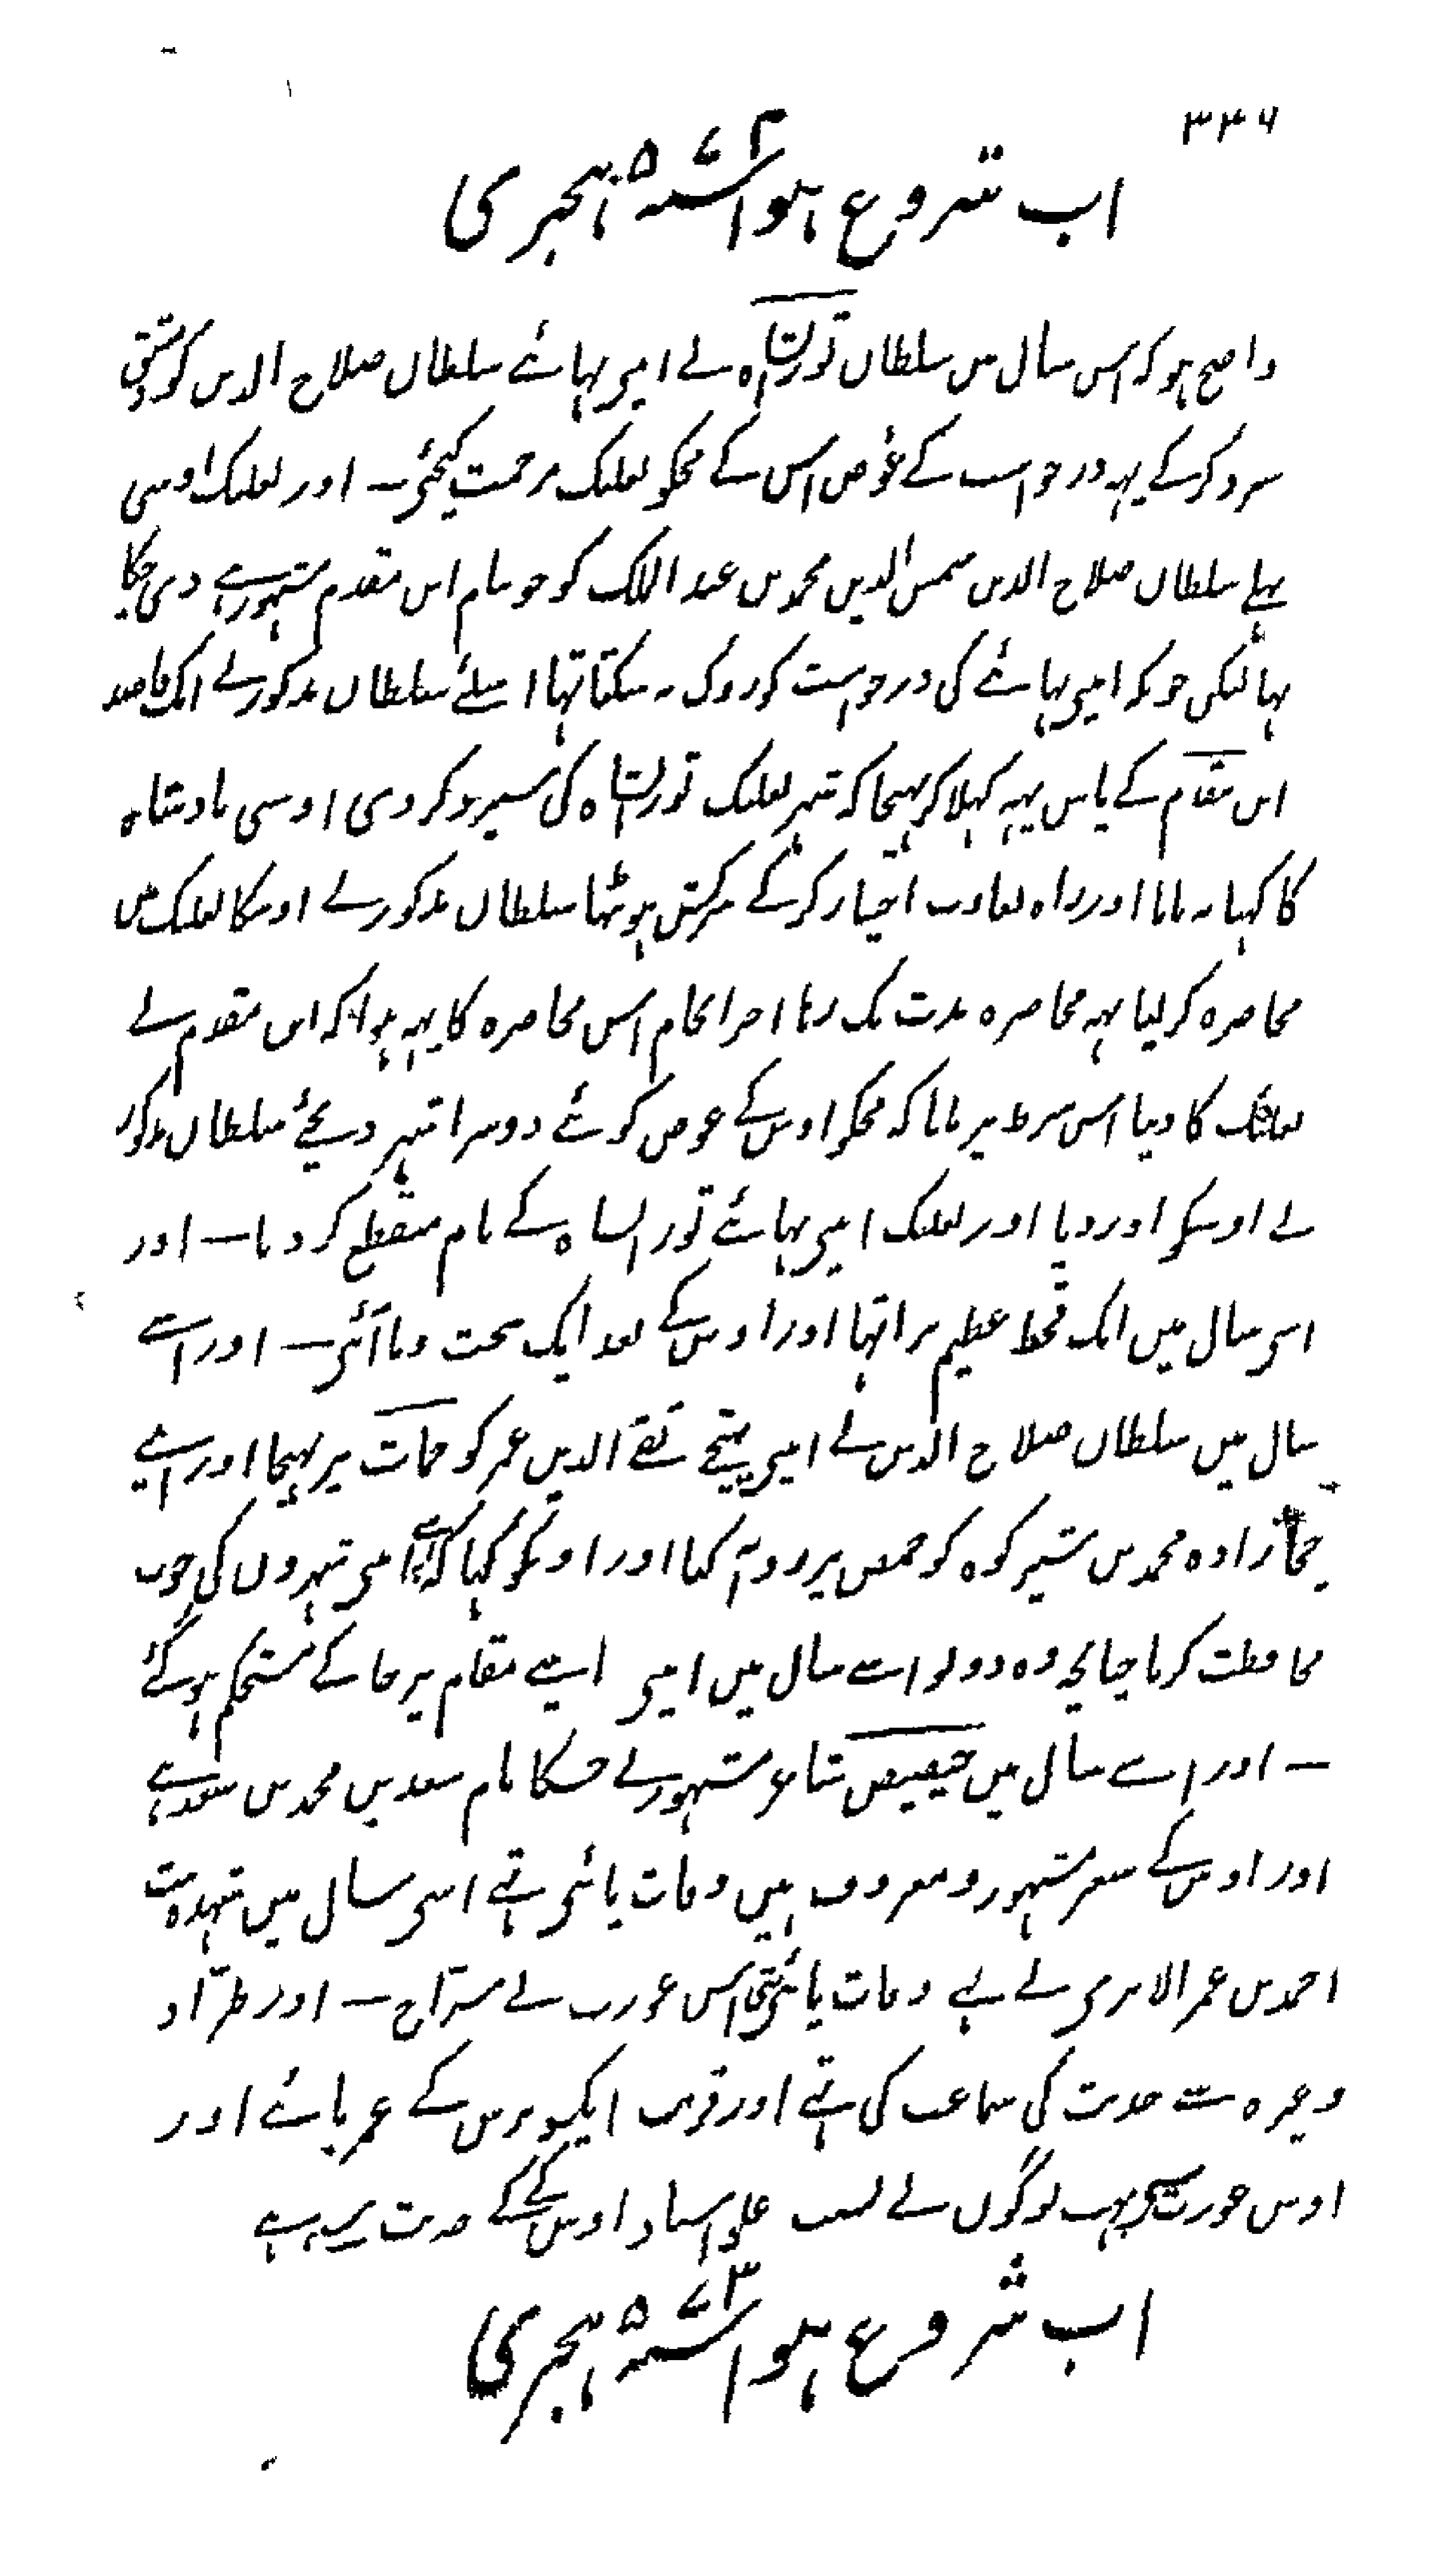 ۳۳۶
اب شروع ہوا سنہ ۵۷۴ ہجری
واضح ہو کہ اس سال میں سلطان تورانشاہ نے اپنی بہائے سلطان صلاح الدین کو دمشق
سپرد کر کے یہہ درخواست کے عوض اس کے مجکو بعلبک مرحمت کیجئی۔ اور بعلبک اوسی
پہلے سلطان صلاح الدین شمس الدین محمد بن عبد الملک کو جو بنام ابن مقدم مشہور ہے دی چکا
تہا لیکن چونکہ اپنی بہائے کی درخواست کو روک نہ سکتا تہا اسلئے سلطان مذکور نے ایک قاصد
ابن مقدم کے پاس یہہ کہلا کر بہیجا کہ شہر بعلبک تورانشاہ کی سپرد کر دی اوسی بادشاہ
کا کہنا نہ مانا اور راہ بغاوت اختیار کر کے سرکش ہو بیٹہا سلطان مذکور نے اوسکا بعلبک میں
محاصرہ کر لیا یہہ محاصرہ مدت تک رہا اخر انجام اس محاصرہ کا یہہ ہوا کہ ابن مقدم نے
بعلبک کا دینا اس شرط پر مانا کہ مجکو اوس کے عوض کوئے دوسرا شہر دیجئے سلطان مذکور
نے اوسکو اور دیا اور بعلبک اپنی بہائے تورانشاہ کے نام منقطع کر دیا۔ اور
اسی سال میں ایک قحط عظیم پڑا تہا اور اوس کے بعد ایک سخت وبا آئی۔ اور اسے
سال میں سلطان صلاح الدین نے اپنی بہتیجے تقے الدین عمر کو حمات پر بہیجا اور اپنے
چچا زادہ محمد بن شیر کوہ کو حمص پر روانہ کیا اور اونکو کہا کہ اپنے اپنی شہروں کی خوب
محافظت کرنا چنانچہ وہ دونو اسے سال میں اپنی اپنے مقام پر جا کے مستحکم ہو گئے
۔ اور اسے سال میں حیصبیص شاعر مشہور نے جسکا نام سعد بن محمد بن سعد ہے
اور اوس کے شعر مشہور و معروف ہیں وفات پائی تہے اسی سال میں شہدہ بنت
احمد بن عمر الابری نے بہے وفات پائی تہی اس عورت نے سراج۔ اور طرّاد
وغیرہ سے حدیث کی سماعت کی تہے اور قریب ایکسو برس کے عمر پائے اور
اوس عورت کی بہت لوگوں نے بسبب علو اسناد اوس کے کے حدیث سنی ہے
اب شروع ہوا سنہ ۵۷۳ ہجری